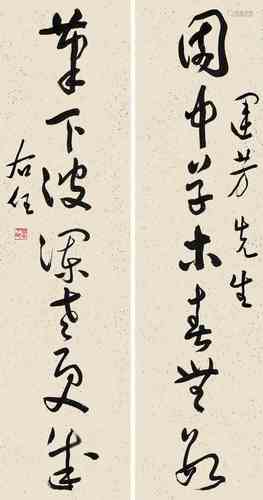 園中草木春無數
建芳先生
筆下波瀾老更成
右任